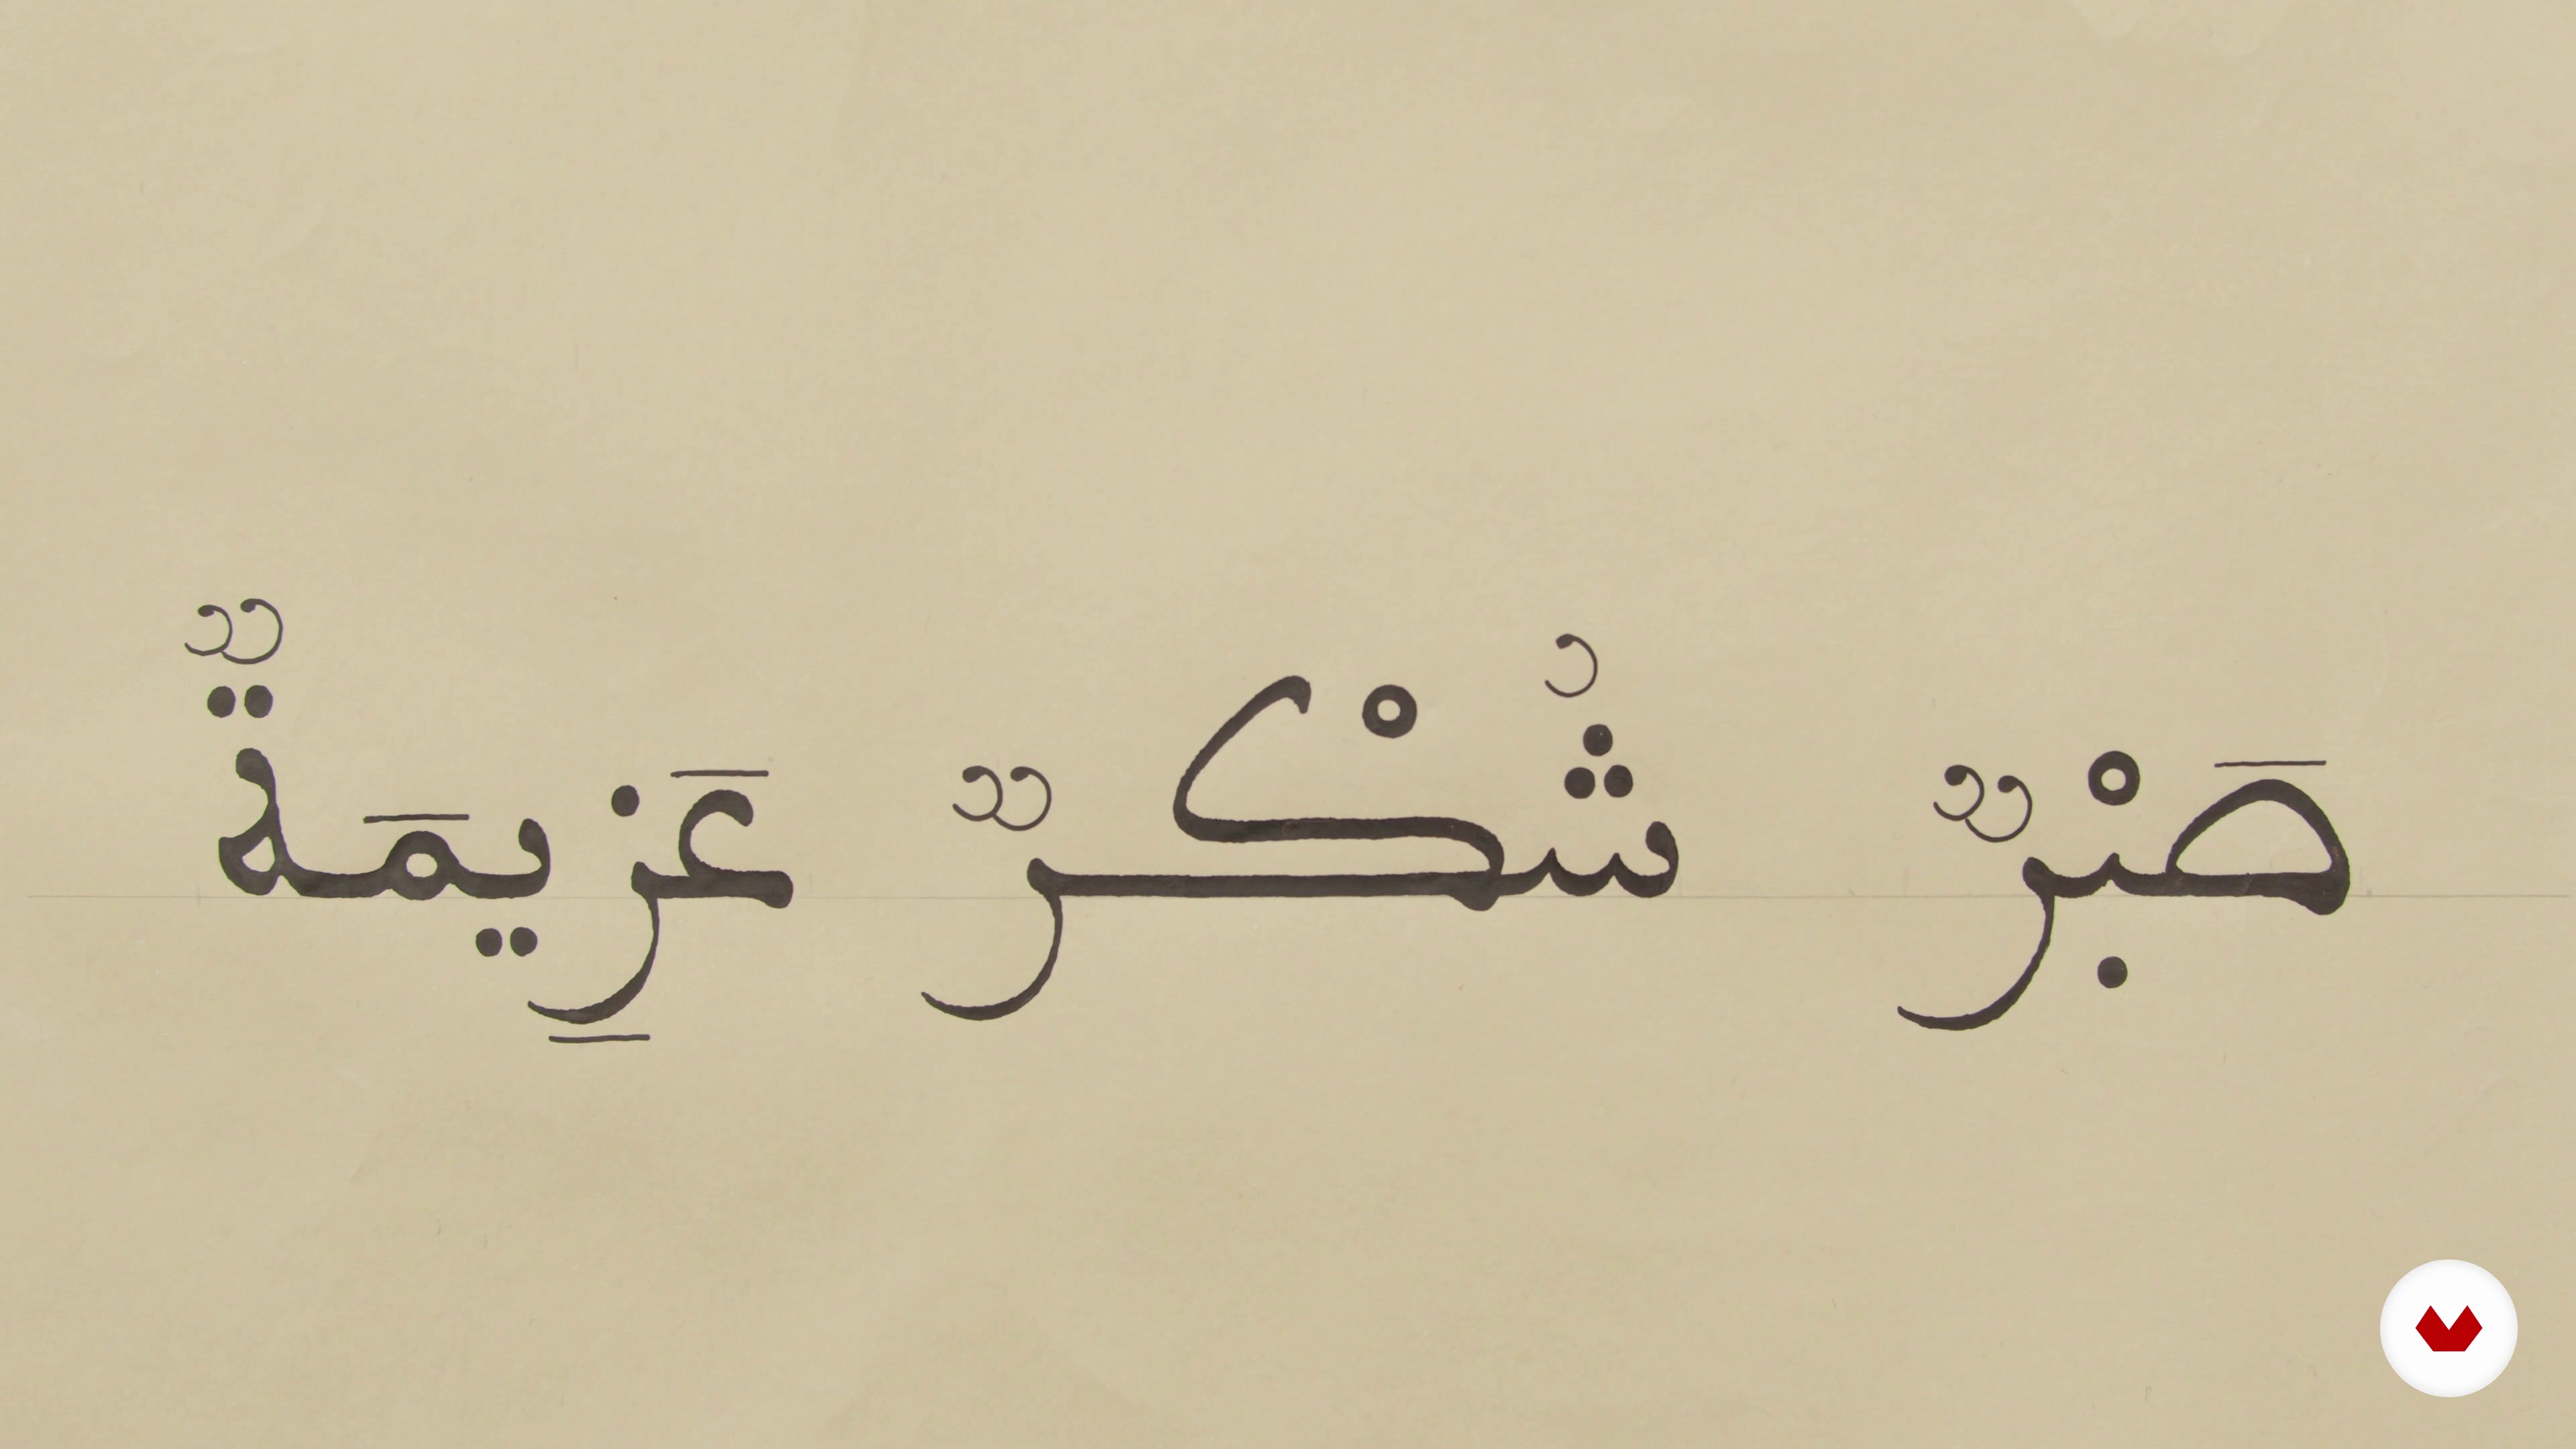 صَبْرٌ شُكْرٌ عَزِيمَةٌ